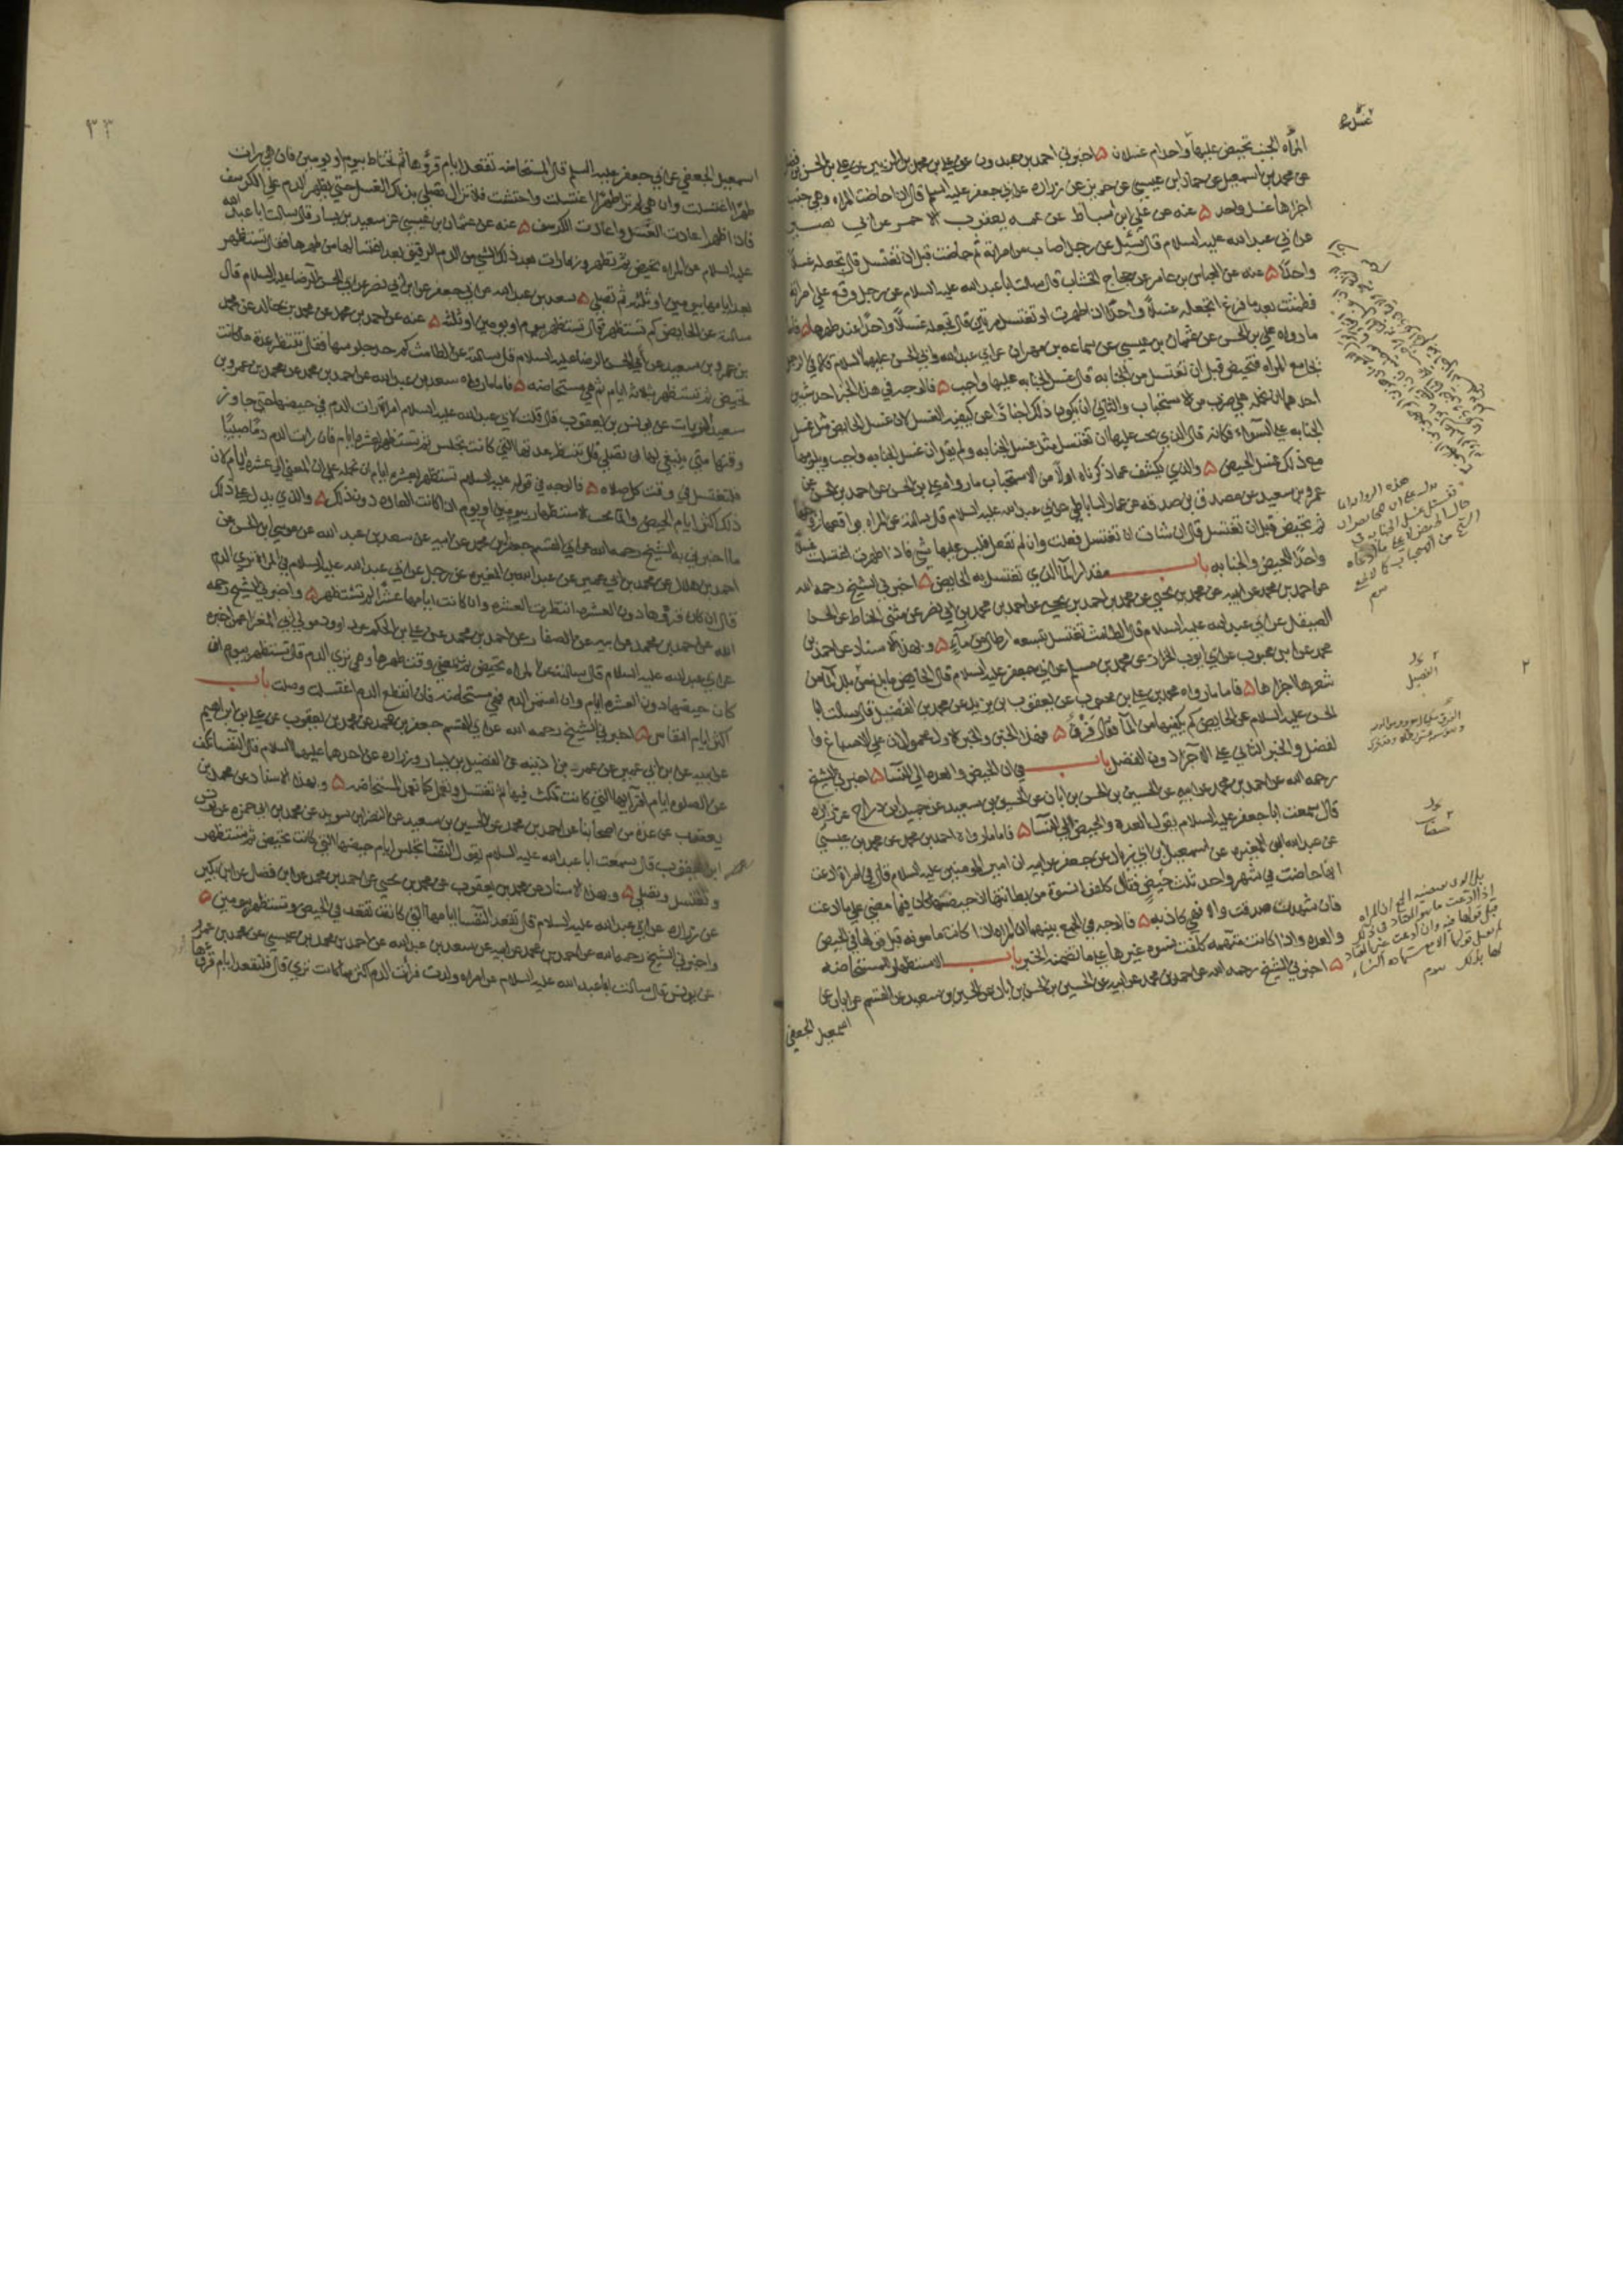 المرأه الجنب تحيض عليها غسل واحد ام غسلان ۵ اخبرني احمد بن عبدون عن علي بن محمد بن الزبير عن علي بن الحسن بن فضال
عن محمد بن اسمعيل عن حماد بن عيسى عن حريز عن زراره عن ابي جعفر عليه السلم قال اذا حاضت المراه وهي جنب
اجزاها غسل واحد ۵ عنه عن علي ابن اسباط عن عمه يعقوب الاحمر عن ابي بصير
عن ابي عبد الله عليه السلام قال سئل عن رجل اصاب من امراته ثم حاضت قبل ان تغتسل قال تجعله غسلا
واحدًا ۵ عنه عن العباس بن عامر عن حجاج الخشاب قال سالت ابا عبد الله عليه السلام عن رجل وقع على امراته
فطمثت بعد ما فرغ اتجعله غسلًا واحدًا اذا طهرت او تغتسل مرتين قال تجعله غسلًا واحدًا عند طهرها ۵ فاما
ما رواه علي بن الحسن عن عثمان بن عيسى عن سماعه بن مهران عن ابي عبد الله وابي الحسن عليهما السلام قالا في الرجل
يجامع المراه فتحيض قبل ان تغتسل من الجنابه قال غسل الجنابه عليها واجب ۵ فالوجه في هذا الخبر احد شيئين
احدهما ان نحمله على ضرب من الاستحباب والثاني ان يكون ذلك اخبارًا عن كيفيه الغسل لان غسل الحايض مثل غسل
الجنابه على السواء فكانه قال الذي يجب عليها ان تغتسل مثل غسل الجنابه ولم يقل ان غسل الجنابه واجب ويلزمها
مع ذلك غسل الحيض ۵ والذي يكشف عما ذكرناه اولًا من الاستحباب ما رواه علي بن الحسن عن احمد بن الحسن عن
عمرو بن سعيد عن مصدق بن صدقه عن عمار الساباطي عن ابي عبد الله عليه السلام قال سالته عن المراه يواقعها زوجها
ثم تحيض قبل ان تغتسل قال ان شات ان تغتسل فعلت وان لم تفعل فليس عليها شي فاذا طهرت اغتسلت غسلًا
واحدًا للحيض والجنابه باب مقدار الماء الذي تغتسل به الحايض ۵ اخبرني الشيخ رحمه الله
عن احمد بن محمد عن ابيه عن محمد بن يحيى عن محمد بن احمد بن يحيى عن احمد بن محمد بن ابي نصر عن مثنى الحناط عن الحسن
الصيقل عن ابي عبد الله عليه السلام قال الطامث تغتسل بتسعه ارطال من ماء ۵ وبهذا الاسناد عن احمد بن
محمد عن ابن محبوب عن ابي ايوب الخزاز عن محمد بن مسلم عن ابي جعفر عليه السلام قال الحايض ما بلغ من بلل الماء من
شعرها اجزاها ۵ فاما ما رواه محمد بن علي بن محبوب عن يعقوب بن يزيد عن محمد بن الفضيل قال سالت ابا
الحسن عليه السلام عن الحايض كم يكفيها من الماء فقال فَرْقٌ ۵ فهذا الخبر والخبر الاول محمولان على الاسباغ و
الفضل والخبر الثاني على الاجزاء دون الفضل باب في ان الحيض والعده الى النساء ۵ اخبرني الشيخ
رحمه الله عن احمد بن محمد عن ابيه عن الحسين بن الحسن بن ابان عن الحسين بن سعيد عن جميل ابن دراج عن زراره
قال سمعت ابا جعفر عليه السلام يقول العده والحيض الى النساء ۵ فاما ما رواه احمد بن محمد عن محمد بن عيسى
عن عبد الله ابن المغيره عن اسمعيل بن ابي زياد عن جعفر عن ابيه ان امير المؤمنين عليه السلام قال في امراة ادعت
انها حاضت في شهر واحد ثلث حيض فقال كلفوا نسوة من بطانتها ان حيضها كان فيما مضى على ما ادعت
فان شهدن صدقت والا فهي كاذبه ۵ فالوجه في الجمع بينهما ان المراه اذا كانت مامونه قبل قولها في الحيض
والعده واذا كانت متهمه كلفت نسوه غيرها على ما تضمنه الخبر باب الاستظهار للمستحاضه
۵ اخبرني الشيخ رحمه الله عن احمد بن محمد عن ابيه عن الحسين بن الحسن بن ابان عن الحسين بن سعيد عن القسم عن ابان عن
اسمعيل الجعفي
٣٣
اسمعيل الجعفي عن ابي جعفر عليه السلم قال المستحاضه تقعد ايام قروها ثم تحتاط بيوم او يومين فان هي رات
طهرًا اغتسلت وان هي لم تر طهرًا اغتسلت واحتشت فلا تزال تصلي بذلك الغسل حتى يظهر الدم على الكرسف
فاذا ظهر اعادت الغسل واعادت الكرسف ۵ عنه عن عثمان بن عيسى عن سعيد بن يسار قال سالت ابا عبد الله
عليه السلام عن المراه تحيض ثم تطهر وربما رات بعد ذلك الشي من الدم الرقيق بعد اغتسالها من طهرها فقال تستظهر
بعد ايامها بيومين او ثلثه ثم تصلي ۵ سعد بن عبد الله عن ابي جعفر عن ابن ابي نصر عن ابي الحسن الرضا عليه السلام قال
سالته عن الحايض كم تستظهر فقال تستظهر بيوم او يومين او ثلثه ۵ عنه عن احمد بن محمد عن محمد بن خالد عن محمد
بن عمرو بن سعيد عن ابي الحسن الرضا عليه السلام قال سالته عن الطامث كم حد جلوسها فقال تنتظر عدة ما كانت
تحيض ثم تستظهر بثلاثة ايام ثم هي مستحاضه ۵ فاما ما رواه سعد بن عبد الله عن احمد بن محمد عن محمد بن عمرو بن
سعيد الزيات عن يونس بن يعقوب قال قلت لابي عبد الله عليه السلام امراة رات الدم في حيضها حتى جاوز
وقتها متى ينبغي لها ان تصلي قال تنتظر عدتها التي كانت تجلس ثم تستظهر بعشره ايام فان رات الدم دمًا صبيبًا
فلتغتسل في وقت كل صلاه ۵ فالوجه في قوله عليه السلام تستظهر بعشره ايام ان نحمله على ان المعنى الى عشره ايام لان
ذلك اكثر ايام الحيض وانما يجب الاستظهار بيومين او يوم اذا كانت العاده دون ذلك ۵ والذي يدل على ذلك
ما اخبرني به الشيخ رحمه الله عن ابي القسم جعفر بن محمد عن ابيه عن سعد بن عبد الله عن موسى ابن الحسن عن
احمد بن هلال عن محمد بن ابي عمير عن عبد الله بن المغيره عن رجل عن ابي عبد الله عليه السلام في المراه ترى الدم
قال ان كان قروها دون العشره انتظرت العشره وان كانت ايامها عشرًا لم تستظهر ۵ واخبرني الشيخ رحمه
الله عن احمد بن محمد عن ابيه عن الصفار عن احمد بن محمد عن علي بن الحكم عن داوود مولى ابي المغرا عمن اخبره
عن ابي عبد الله عليه السلام قال سالته عن المراه تحيض ثم يمضي وقت طهرها وهي ترى الدم قال تستظهر بيوم ان
كان حيضها دون العشره ايام وان استمر الدم فهي مستحاضه فان انقطع الدم اغتسلت وصلت باب
اكثر ايام النفاس ۵ اخبرني الشيخ رحمه الله عن ابي القسم جعفر بن محمد عن محمد بن يعقوب عن علي بن ابراهيم
عن ابيه عن ابن ابي عمير عن عمر بن اذينه عن الفضيل بن يسار وزراره عن احدهما عليهما السلام قال النفساء تكف
عن الصلوه ايام اقرائها التي كانت تمكث فيها ثم تغتسل وتعمل كما تعمل المستحاضه ۵ وبهذا الاسناد عن محمد بن
يعقوب عن عدة من اصحابنا عن احمد بن محمد عن الحسين بن سعيد عن النضر ابن سويد عن محمد بن ابي حمزه عن يونس
ابن يعقوب قال سمعت ابا عبد الله عليه السلام يقول النفساء تجلس ايام حيضها التي كانت تحيض ثم تستظهر
وتغتسل وتصلي ۵ وبهذا الاسناد عن محمد بن يعقوب عن محمد بن يحيى عن احمد بن محمد عن ابن فضال عن ابن بكير
عن زراره عن ابي عبد الله عليه السلام قال تقعد النفساء ايامها التي كانت تقعد في الحيض وتستظهر بيومين ۵
واخبرني الشيخ رحمه الله عن احمد بن محمد عن ابيه عن سعد بن عبد الله عن احمد بن محمد بن عيسى عن محمد بن عمرو
عن يونس قال سالت ابا عبد الله عليه السلام عن امراه ولدت فرات الدم اكثر مما كانت ترى قال فلتقعد ايام قرئها